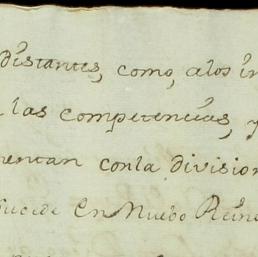 distantes, como, alos in
las competencias, y
mentan conla division
sucede en Nuebo Reino